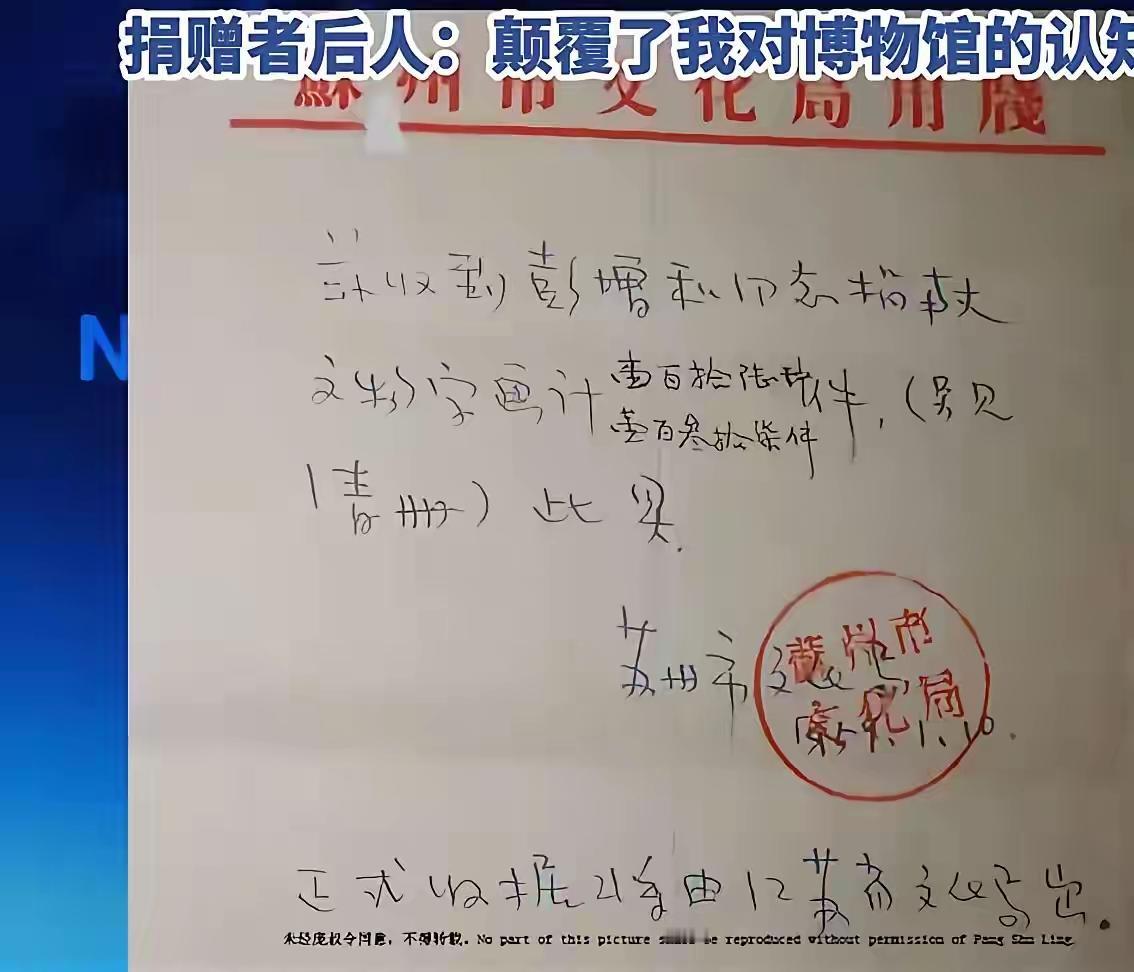 捐赠者后人：颠覆了我对博物馆的认知
蘇州市文化局用牋
N
兹收到彭增和同志捐献
文物字画计壹百拾陆件，（另见
壹百叁拾柒件
清册）此具
苏州市文化
苏州市
文化局
1959.1.10.
正式收据将由江苏省文化局出.
未经庞 授权 同意，不得转载。No part of this picture shall be reproduced without permission of Pang Shu Ling